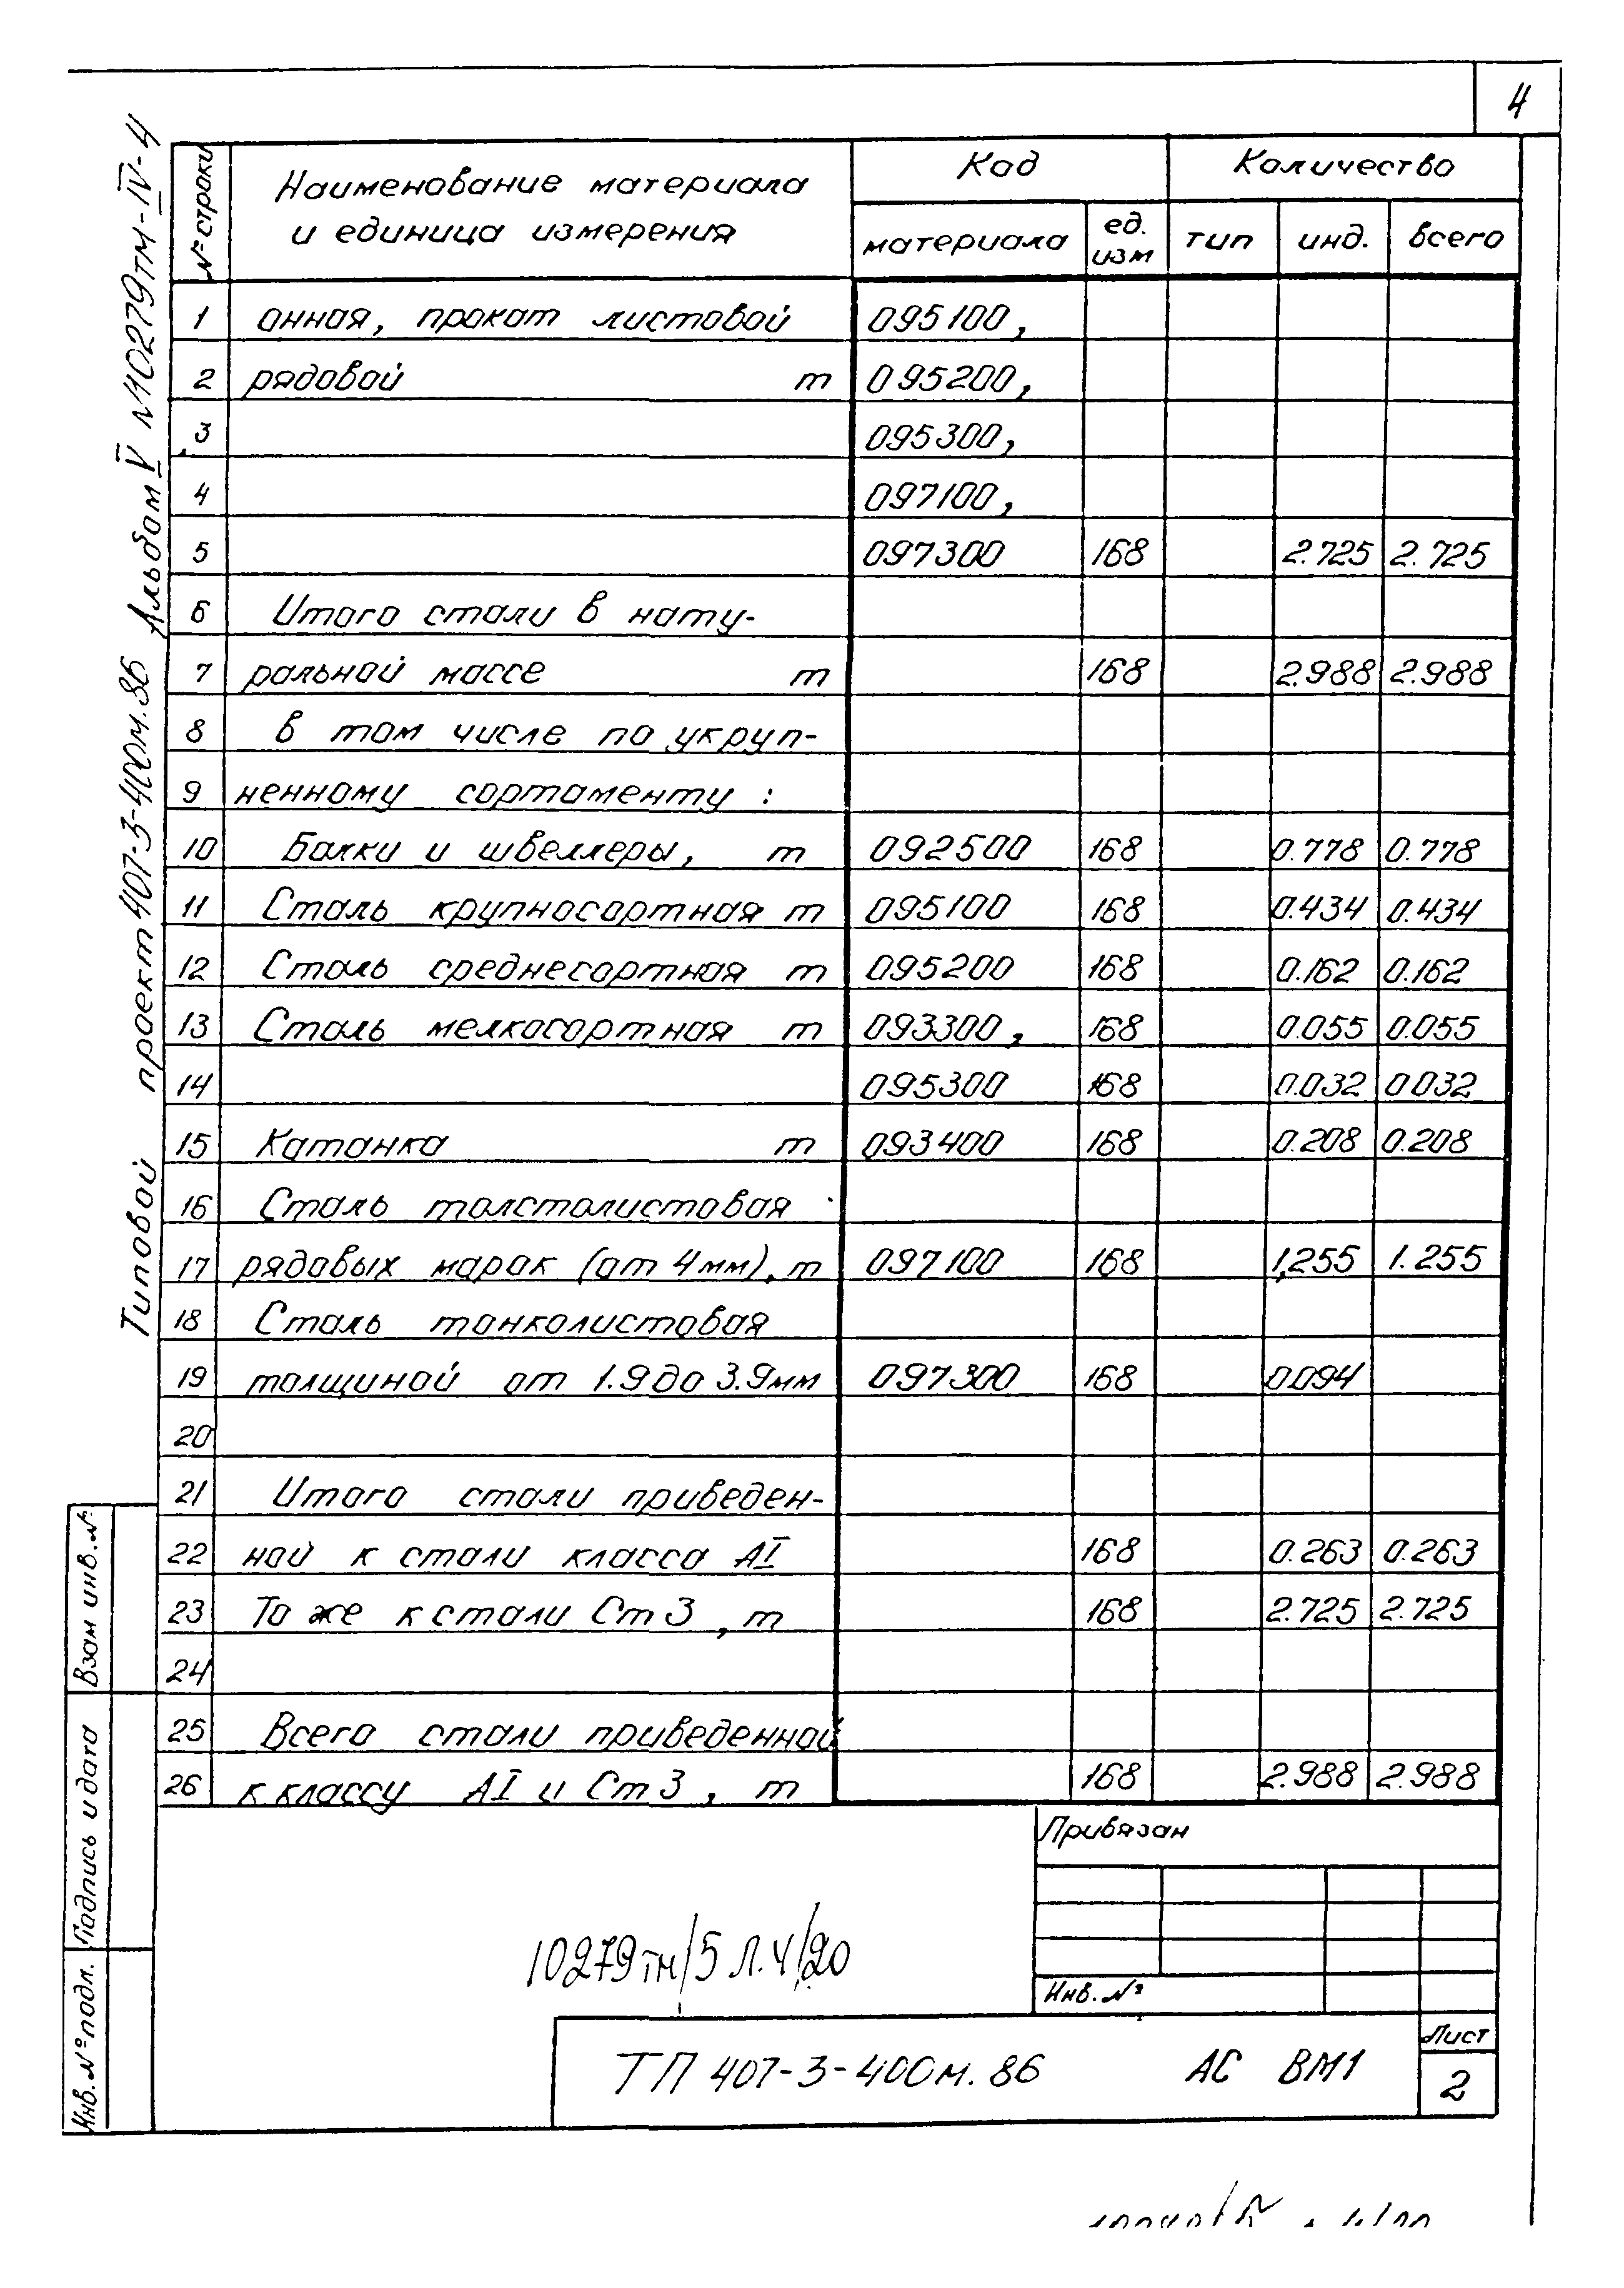 4
№ строки Наименование материала и единица измерения Код Количество
материала ед. изм тип инд. всего
1 онная, прокат листовой 095100,
2 рядовой т 095200,
3 095300,
4 097100,
5 097300 168 2.725 2.725
6 Итого стали в нату-
7 ральной массе т 168 2.988 2.988
8 в том числе по укруп-
9 ненному сортаменту :
10 Балки и швеллеры, т 092500 168 0.778 0.778
11 Сталь крупносортная т 095100 168 0.434 0.434
12 Сталь среднесортная т 095200 168 0.162 0.162
13 Сталь мелкосортная т 093300, 168 0.055 0.055
14 095300 168 0.032 0.032
15 Катанка т 093400 168 0.208 0.208
16 Сталь толстолистовая
17 рядовых марок (от 4 мм), т 097100 168 1,255 1.255
18 Сталь тонколистовая
19 толщиной от 1.9 до 3.9 мм 097300 168 0.094
20
21 Итого стали приведен-
22 ной к стали класса АI 168 0.263 0.263
23 То же к стали Ст 3, т 168 2.725 2.725
24
25 Всего стали приведенной
26 к классу АI и Ст 3, т 168 2.988 2.988
Типовой проект 407-3-400м.86 Альбом V №10279тм-IV-4
Взам инв. №
Подпись и дата
Инв. № подл.
Привязан
Инв. №
10279тм/5 Л.4/20
ТП 407-3-400м.86 АС ВМ1
Лист
2